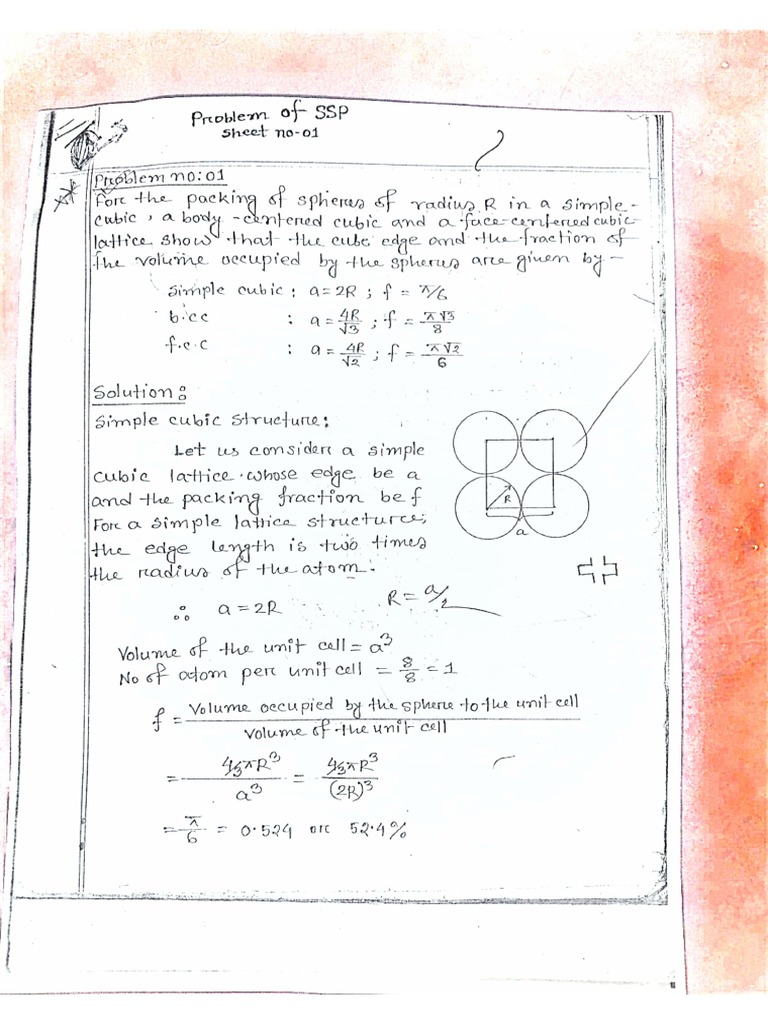 Problem of SSP
Sheet no-01
Problem no:01
Forc the packing of spheres of radius R in a simple-
cubic, a body-centered cubic and a face-centered cubic
lattice show that the cube edge and the fraction of
the volume occupied by the spheres are given by-
Simple cubic : a=2R ; f = π/6
b.c.c : a = 4R/√3 ; f = π√3/8
f.c.c : a = 4R/√2 ; f = π√2/6
Solution:
Simple cubic structure:
Let us consider a simple
cubic lattice whose edge be a
and the packing fraction be f
Forc a simple lattice structure,
the edge length is two times
the radius of the atom.
R
a
∴ a = 2R R = a/2
Volume of the unit cell = a³
No of atom per unit cell = 8/8 = 1
f = Volume occupied by the sphere to the unit cell / volume of the unit cell
= 4/3πR³ / a³ = 4/3πR³ / (2R)³
= π/6 = 0.524 orc 52.4%